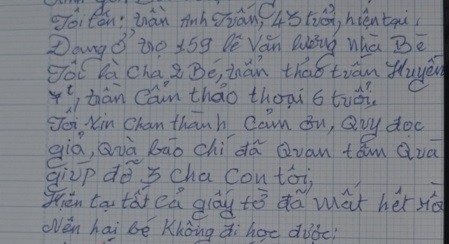 Tôi tên: trần Anh Tuấn, 43 tuổi, hiện tại,
Đang ở trọ 159 lê Văn lương nhà Bè
Tôi là cha 2 Bé, trần thảo trấn Huyền
7t, trần Cẩm thảo thoại 6 tuổi,
Tôi, xin chân thành Cảm ơn, Quý đọc
giả, Quà báo chí đã Quan tâm Quà
giúp đỡ 3 cha con tôi,
Hiện tại tất cả giấy tờ đã mất hết rồi
Nên hai bé Không đi học được: